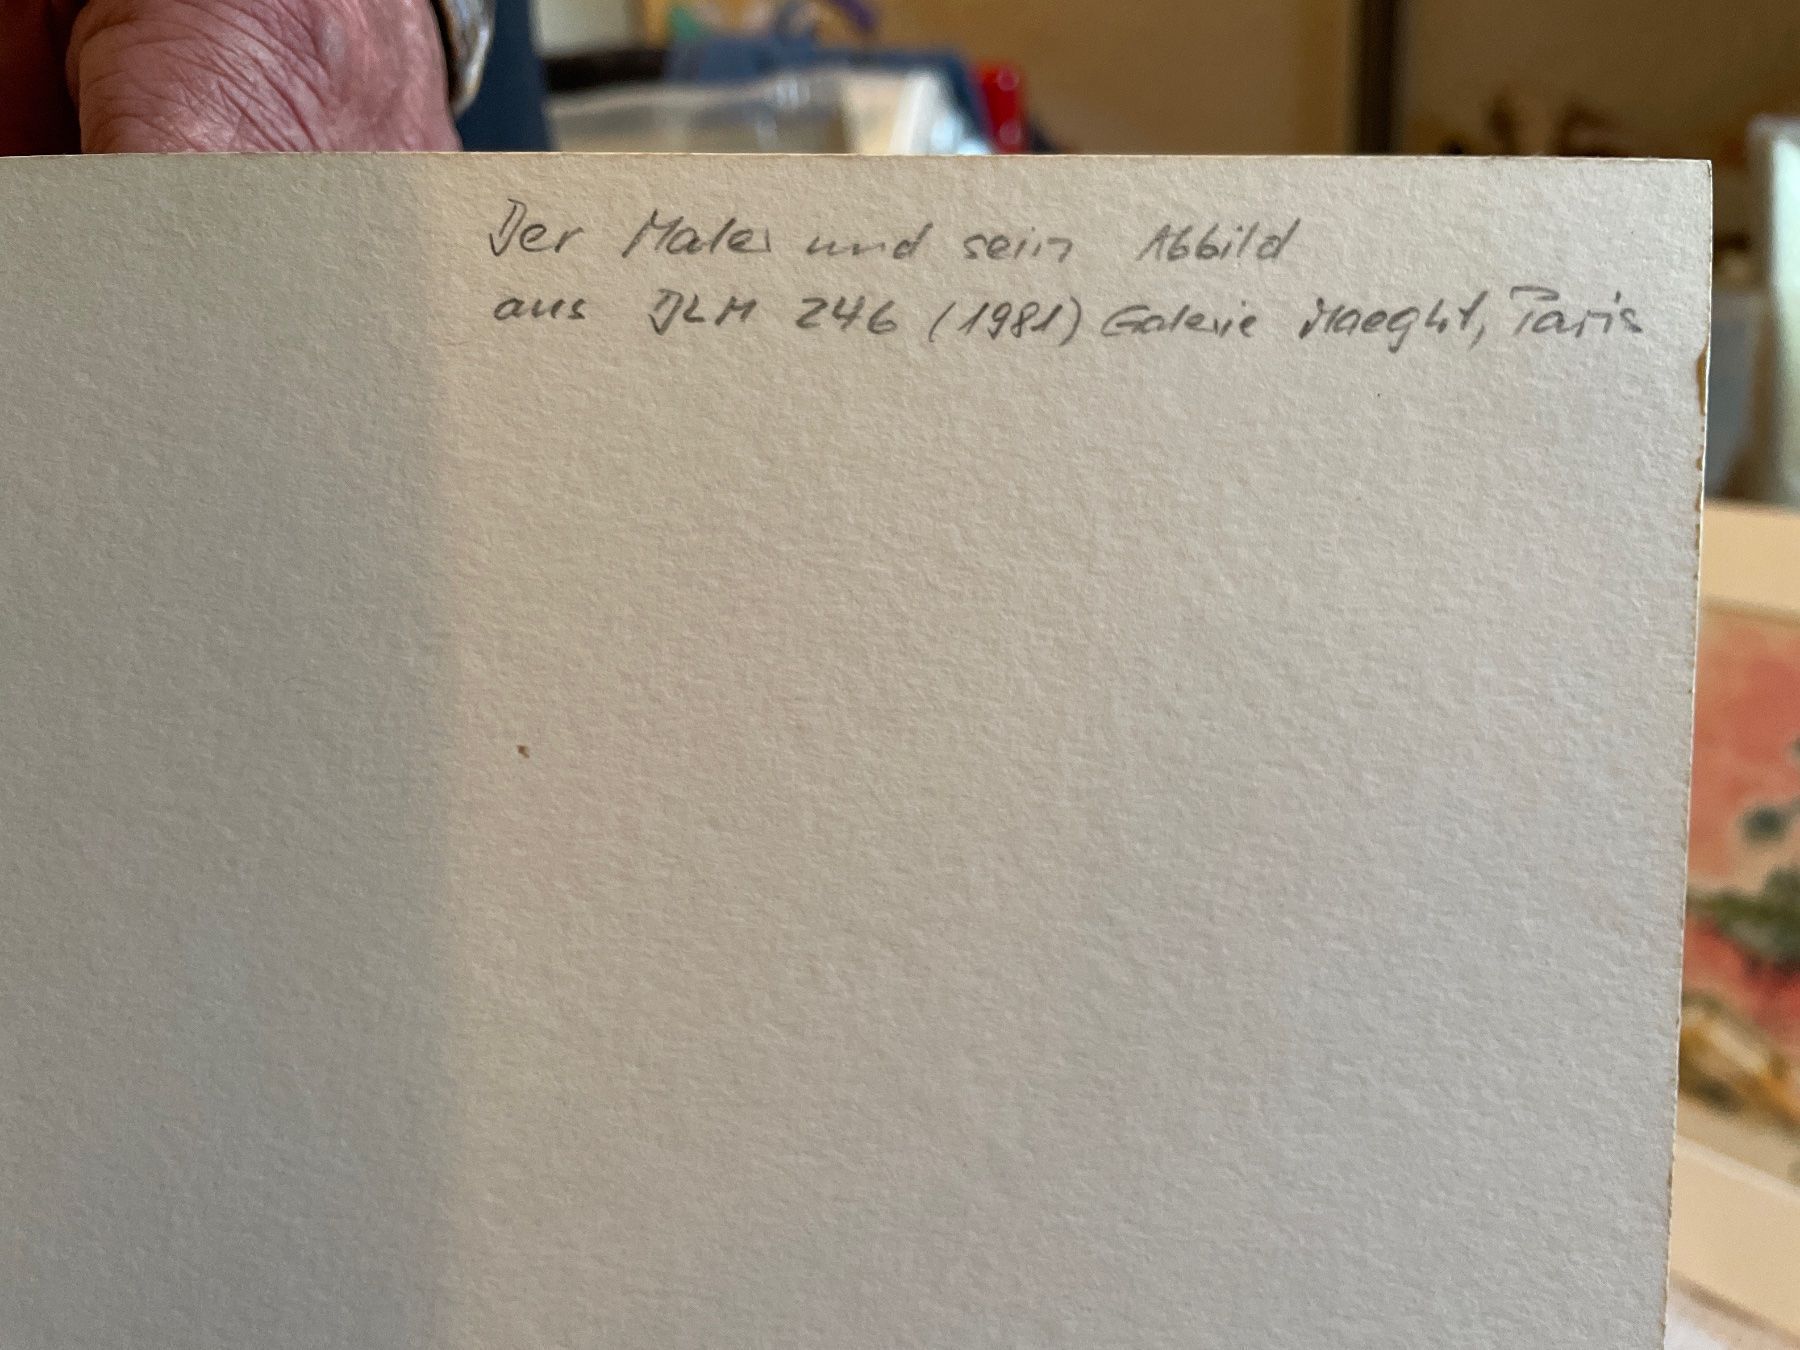 Der Maler und sein Abbild
aus DLM 246 (1981) Galerie Maeght, Paris